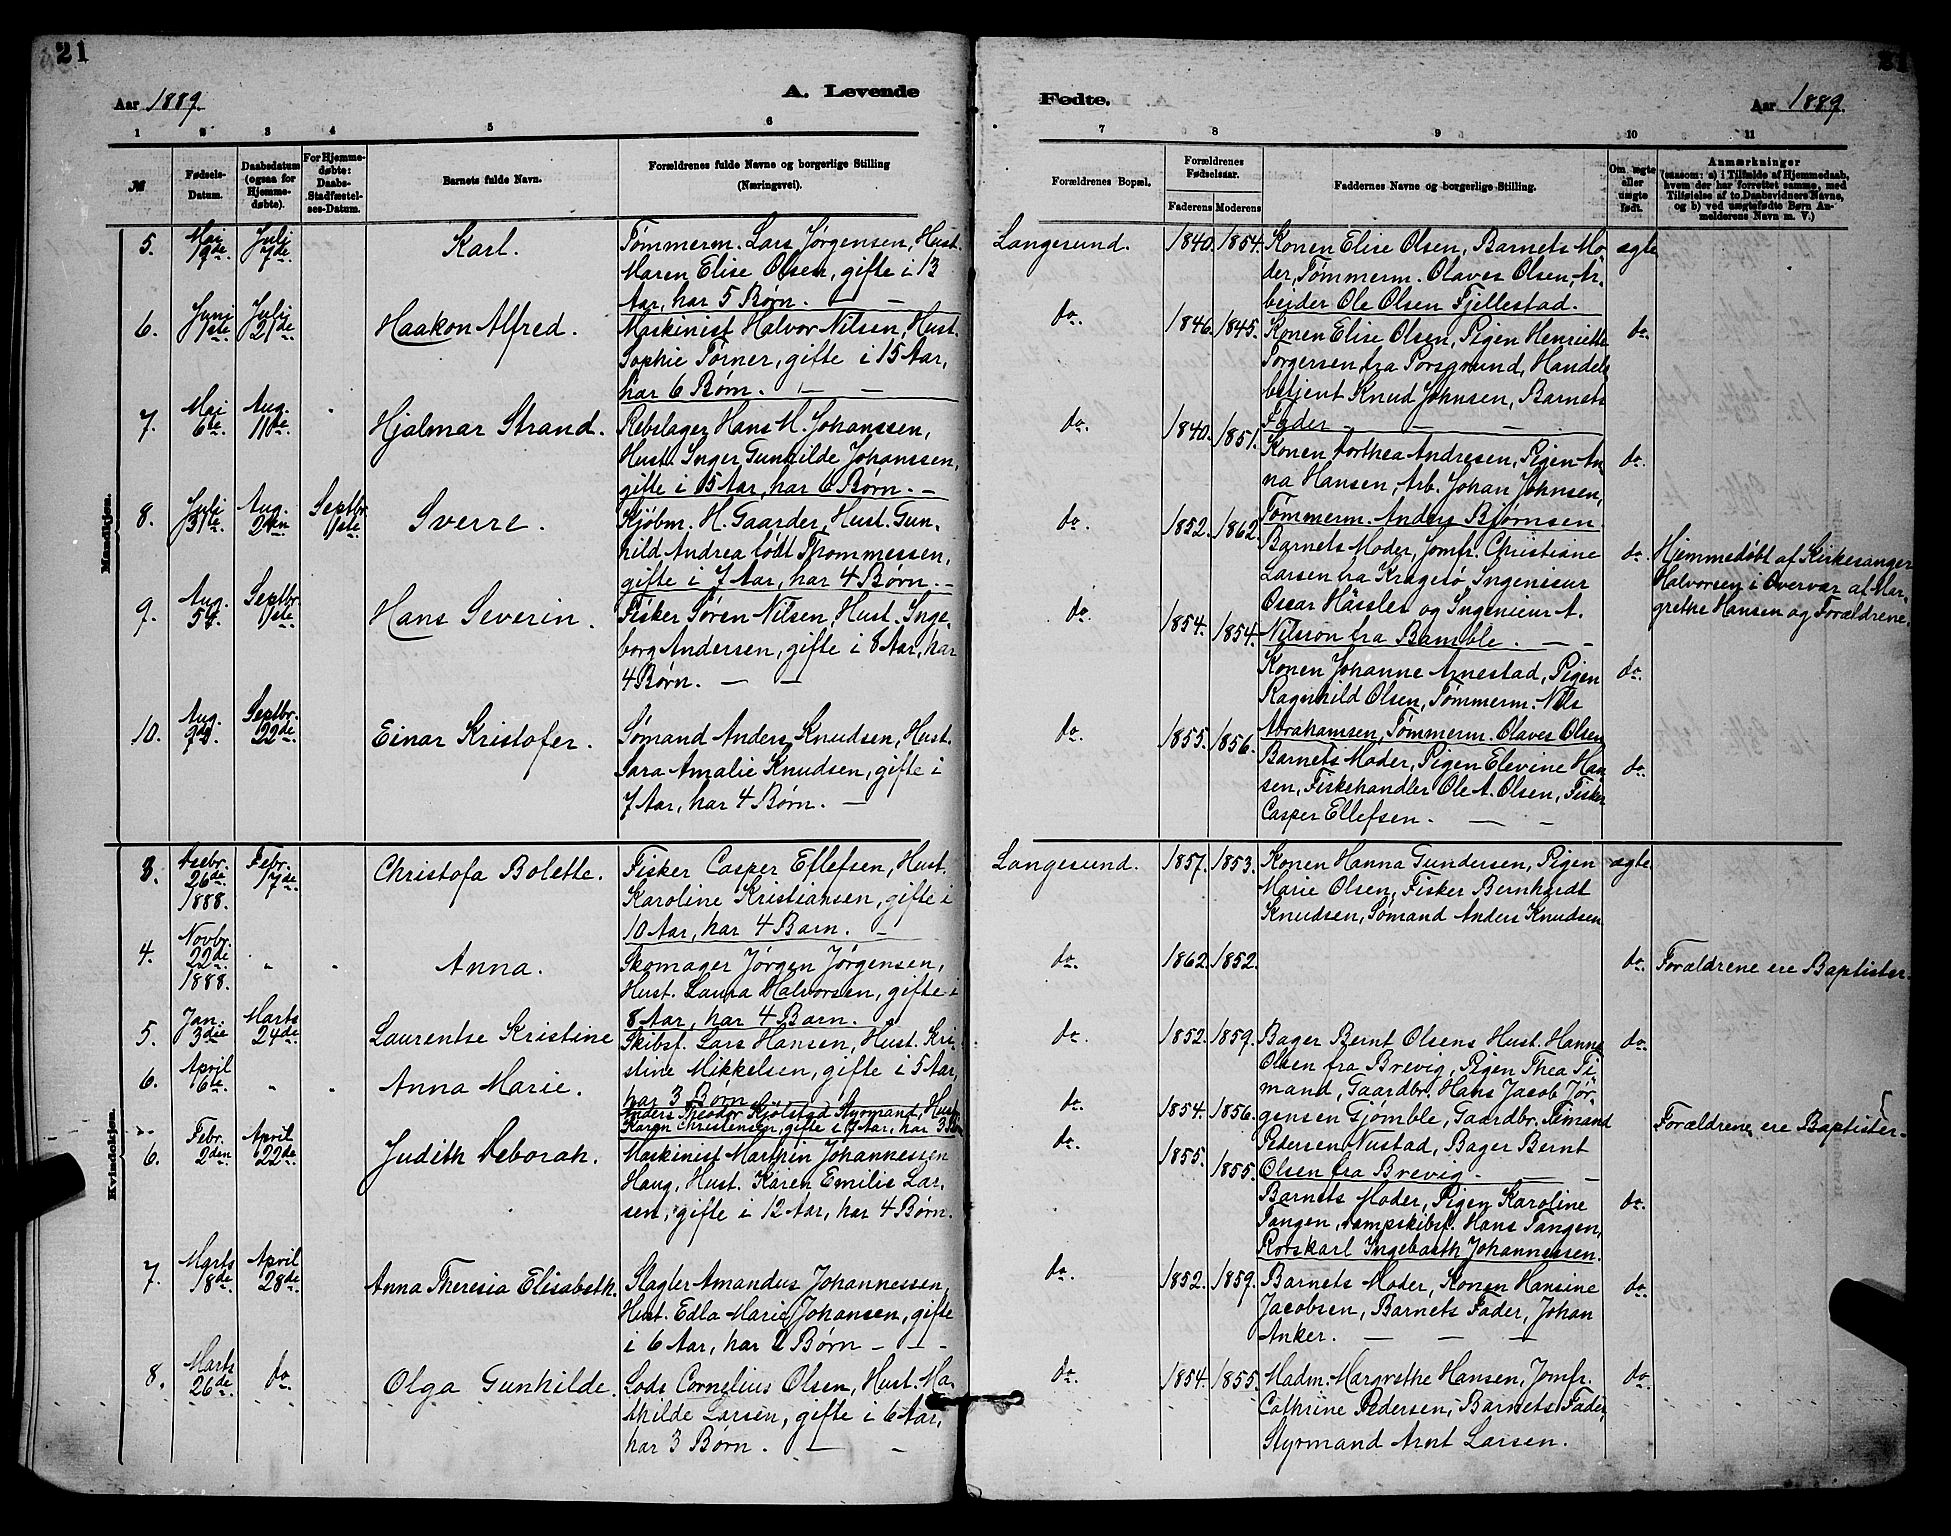 21
21
Aar 1889.
A. Levende
Fødte.
Aar 1889.
1 2 3 4 5 6
7 8 9 10 11
№
Fødsels-
Datum.
Daabsdatum
(ogsaa for
Hjemme-
døbte).
For Hjemme-
døbte:
Daabs-
Stadfæstel-
ses-Datum.
Barnets fulde Navn.
Forældrenes fulde Navne og borgerlige Stilling
(Næringsvei).
Forældrenes Bopæl.
Forældrenes
Fødselsaar.
Faderens Moderens
Faddernes Navne og borgerlige Stilling.
Om ægte
eller
uægte
født.
Anmærkninger
(saasom: a) i Tilfælde af Hjemmedaab,
hvem der har forrettet samme, med
Tilføielse af to Daabsvidners Navne,
og b) ved uægtefødte Børn An-
melderens Navn m. V.)
Mandkjøn.
5.
Mai
19de
Juli
7de.
Karl.
Tømmerm. Lars Jørgensen, Hust.
Maren Elise Olsen, gifte i 13
Aar, har 5 Børn.
Langesund.
1840. 1854.
Konen Elise Olsen, Barnets Mo-
der, Tømmerm. Olaves Olsen, Ar-
beider Ole Olsen Fjellestad.
ægte
6.
Juni
1ste.
Juli
21de
Haakon Alfred.
Maskinist Halvor Nilsen, Hust.
Sophie Tørner, gifte i 15 Aar,
har 6 Børn.
do.
1846. 1845.
Konen Elise Olsen, Pigen Henriette
Torgersen fra Porsgrund, Handels
betjent Knud Johnsen, Barnets
Fader
do.
7.
Mai
6te.
Aug.
11te.
Hjalmar Strand.
Rebslager Hans M. Johanssen,
Hust. Inger Gunhilde Johanssen,
gifte i 15 Aar, har 6 Børn.
do.
1840. 1851.
Konen Dorthea Andresen, Pigen An-
na Hansen, Arb. Johan Johnsen,
Tømmerm. Anders Bjørnsen.
do.
8.
Juli
31te.
Aug.
2den
Septbr.
1ste.
Sverre.
Kjøbm. H. Gaarder, Hust. Gun-
hild Andrea født Thommessen,
gifte i 7 Aar, har 4 Børn.
do.
1852. 1862.
Barnets Moder, Jomfr. Christiane
Larsen fra Kragerø, Ingeniør
Oscar Hässler og Ingenieur A.
Nilsson fra Bamble.
do.
Hjemmedøbt af Kirkesanger
Halvorsen i Overvær af Mar-
grethe Hansen og Forældrene.
9.
Aug.
5te.
Septbr.
1ste.
Hans Severin.
Fisker Søren Nilsen, Hust. Inge-
borg Andersen, gifte i 8 Aar, har
4 Børn.
do.
1854. 1854.
Konen Johanne Arnestad, Pigen
Ragnhild Olsen, Tømmerm. Nils
Abrahamsen, Tømmerm. Olaves Olsen
do.
10.
Aug.
7de.
Septbr.
22de.
Einar Kristofer.
Sømand Anders Knudsen, Hust.
Sara Amalie Knudsen, gifte i
7 Aar, har 4 Børn.
do.
1855. 1856.
Barnets Moder, Pigen Elevine Han-
sen, Fiskehandler Ole A. Olsen, Fisker
Casper Ellefsen.
do.
Kvindekjøn.
3.
Decbr.
26de.
1888.
Febr.
17de
Christofa Bolette.
Fisker Casper Ellefsen, Hust.
Karoline Kristiansen, gifte i
10 Aar, har 4 Barn.
Langesund.
1857. 1853.
Konen Hanna Gundersen, Pigen
Marie Olsen, Fisker Bernhardt
Knudsen, Sømand Anders Knudsen
ægte
4.
Novbr.
22de.
1888.
Anna.
Skomager Jørgen Jørgensen,
Hust. Laura Halvorsen, gifte i
8 Aar, har 4 Barn.
do.
1862. 1852.
do.
Forældrene ere Baptister.
5.
Jan.
3die
Marts
24de
Laurentse Kristine
Skibsf. Lars Hansen, Hust. Kri-
stine Mikkelsen, gifte i 5 Aar,
har 3 Børn
do.
1852. 1859.
Bager Bernt Olsens Hust. Hanna
Olsen fra Brevig, Pigen Thea Ti-
mand, Gaardbr. Hans Jacob Jør-
gensen Gjømble, Gaardbr. Timand
Pedersen Nustad, Bager Bernt
Olsen fra Brevig.
do.
6.
April
6te.
Anna Marie.
Anders Theodor Kjølstad Styrmand, Hust.
Karen Christensen, gifte i 7 Aar, har 3 Børn
do.
1854. 1856.
Forældrene ere Baptister.
6.
Febr.
2den
April
22de
Judith Deborah.
Maskinist Marthin Johannessen
Haug, Hust. Karen Emilie Lar-
sen, gifte i 12 Aar, har 4 Børn.
do.
1855. 1855.
Barnets Moder, Pigen Karoline
Tangen, Dampskibsf. Hans Tangen,
Rorskarl Ingebarth Johannessen.
do.
7.
Marts
18de.
April
28de.
Anna Theresia Elisabeth.
Slagter Amandus Johannessen,
Hust. Edla Marie Johansen, gifte
i 6 Aar, har 2 Børn
do.
1852. 1859.
Barnets Moder, Konen Hansine
Jacobsen, Barnets Fader, Johan
Anker.
do.
8.
Marts
26de.
do.
Olga Gunhilde.
Lods Cornelius Olsen, Hust. Ma-
thilde Larsen, gifte i 6 Aar,
har 3 Børn.
do.
1854. 1855.
Madm. Margrethe Hansen, Jomfr.
Cathrine Pedersen, Barnets Fader,
Styrmand Arnt Larsen.
do.